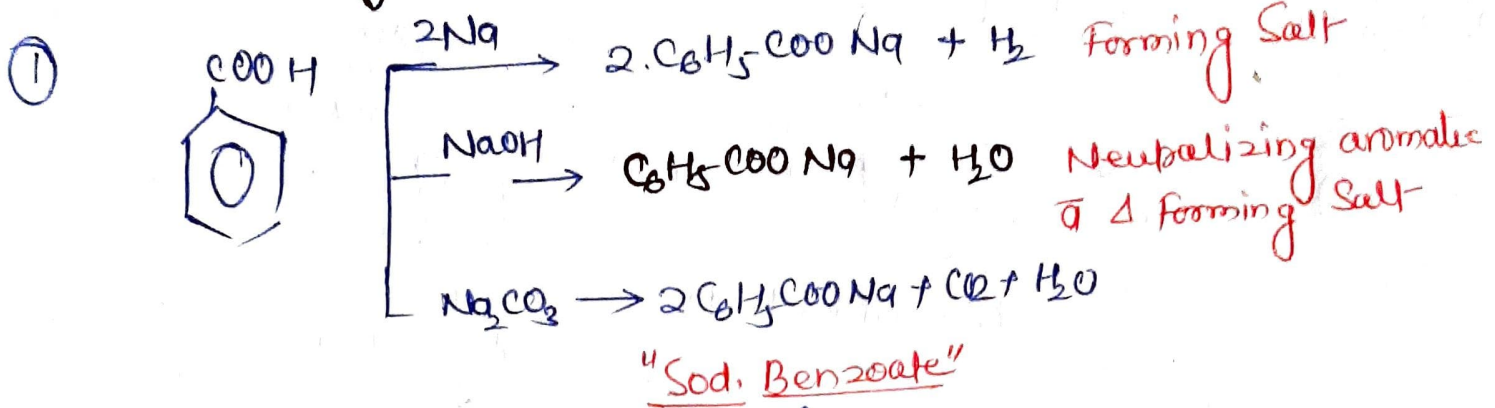 ① COOH 2Na → 2.C₆H₅COONa + H₂ Forming Salt
NaOH → C₆H₅COONa + H₂O Neutralizing aromatic
ā & forming salt
Na₂CO₃ → 2C₆H₅COONa + CO₂ + H₂O
"Sod. Benzoate"